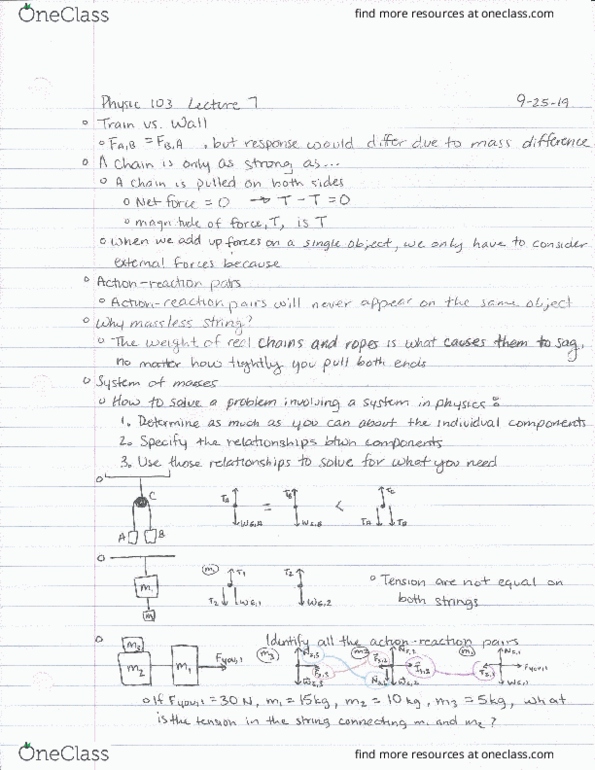 OneClass
find more resources at oneclass.com
Physic 103 Lecture 7
9-25-19
Train vs. Wall
FA,B = FB,A , but response would differ due to mass difference.
A chain is only as strong as...
A chain is pulled on both sides
Net force = 0 → T - T = 0
magnitude of force, T, is T
When we add up forces on a single object, we only have to consider
external forces because
Action-reaction pairs
Action-reaction pairs will never appear on the same object
Why massless string?
The weight of real chains and ropes is what causes them to sag,
no matter how tightly you pull both ends
System of masses
How to solve a problem involving a system in physics:
1. Determine as much as you can about the individual components
2. Specify the relationships btwn components
3. Use those relationships to solve for what you need
C
A B
WG,A = WG,B < TC
TA TB
m1
m1 T1 T2
T2 WG,1 WG,2
Tension are not equal on
both strings
Identify all the action-reaction pairs
m3
m2 m1 Fyou,1
m3
Fyou,1
WG,1
If Fyou,1 = 30 N, m1 = 15kg, m2 = 10 kg, m3 = 5kg, what
is the tension in the string connecting m1 and m2?
OneClass
find more resources at oneclass.com